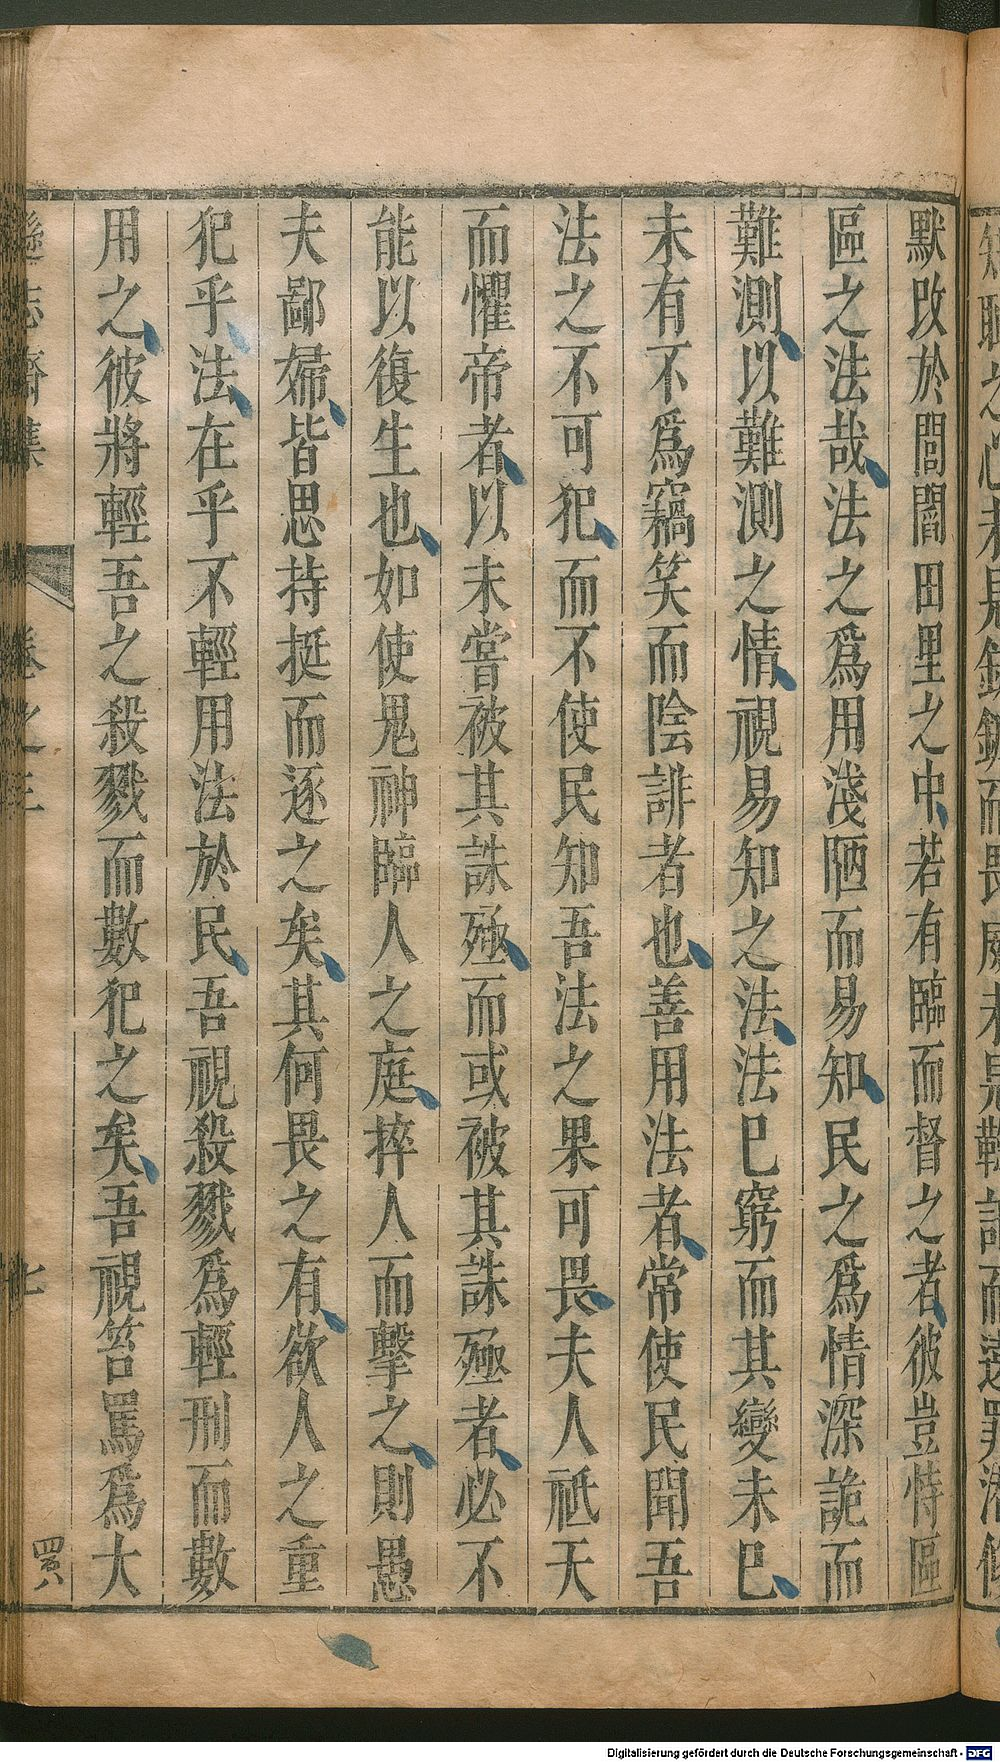 默改於閭閻田里之中若有臨而督之者彼豈恃區
區之法哉法之爲用淺陋而易知民之爲情深詭而
難測以難測之情視易知之法法已窮而其變未已
未有不爲竊笑而陰誹者也善用法者常使民聞吾
法之不可犯而不使民知吾法之果可畏夫人祗天
而懼帝者以未嘗被其誅殛而或被其誅殛者必不
能以復生也如使鬼神臨人之庭捽人而擊之則愚
夫鄙婦皆思持挺而逐之矣其何畏之有欲人之重
犯乎法在乎不輕用法於民吾視殺戮爲輕刑而數
用之彼將輕吾之殺戮而數犯之矣吾視笞罵爲大
遜志齋集 卷之三 七
Digitalisierung gefördert durch die Deutsche Forschungsgemeinschaft - DFG